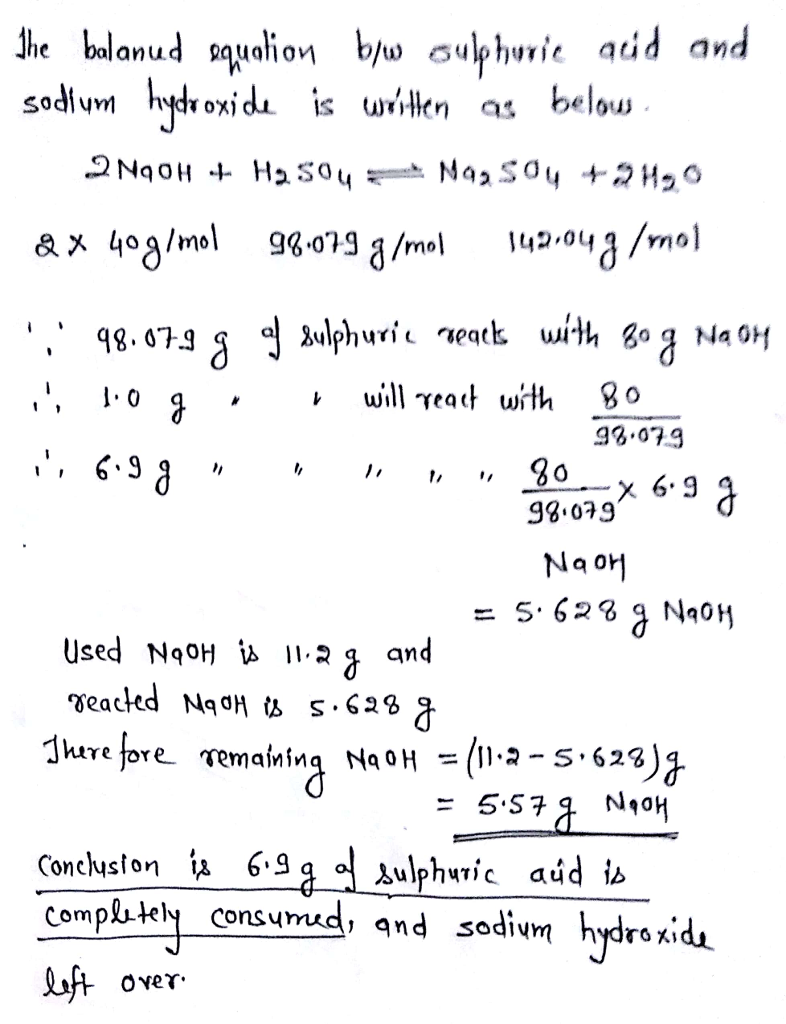 The balanud equation b/w sulphuric acid and
sodium hydroxide is written as below.
2 NaOH + H2 SO4 ⇌ Na2 SO4 + 2 H2O
2 x 40g/mol 98.079 g/mol 142.04 g/mol
∵ 98.079 g of sulphuric reacts with 80 g NaOH
∴ 1.0 g " " will react with 80
98.079
∴ 6.9 g " " " " " 80 x 6.9 g
98.079
NaOH
= 5.628 g NaOH
Used NaOH is 11.2 g and
reacted NaOH is 5.628 g
Therefore remaining NaOH = (11.2 - 5.628)g
= 5.57 g NaOH
Conclusion is 6.9 g of sulphuric acid is
completely consumed, and sodium hydroxide
left over.